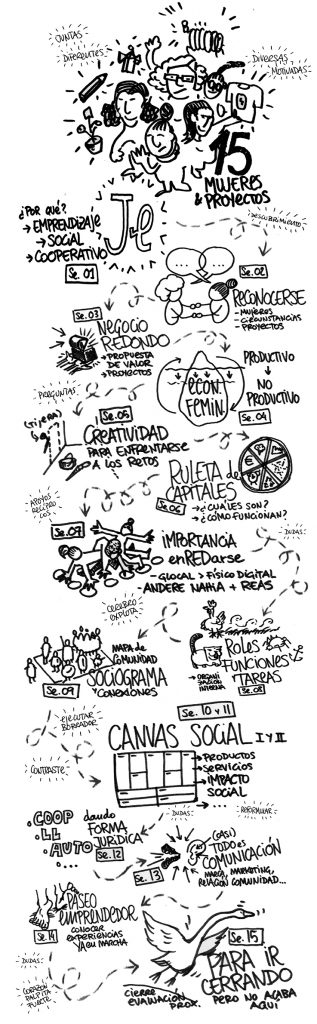 JUNTAS
DIFERENTES
DIVERSAS
MOTIVADAS
15
MUJERES
& PROYECTOS
¿POR QUÉ?
→ EMPRENDIZAJE
→ SOCIAL
→ COOPERATIVO
Se. 01
DESCUBRIMIENTO
Se. 02
RECONOCERSE
- MUJERES
- CIRCUNSTANCIAS
- PROYECTOS
Se. 03
NEGOCIO
REDONDO
→ PROPUESTA
DE VALOR
→ PROYECTOS
PREGUNTAS
ECON.
FEMIN.
PRODUCTIVO
NO
PRODUCTIVO
Se. 04
Se. 05
CREATIVIDAD
PARA ENFRENTARSE
A LOS RETOS
RULETA de
CAPITALES
Se. 06
→ ¿CUÁLES SON?
→ ¿CÓMO FUNCIONAN?
DUDAS
Se. 07
IMPORTANCIA
enREDarse
- GLOCAL → FÍSICO DIGITAL
ANDERE NAHIA + REAS
CEREBRO
EXPLOTA
ROLES
FUNCIONES
TAREAS
Se. 08
→ ORGANI
ZACIÓN
INTERNA
MAPA de
COMUNIDAD
SOCIOGRAMA
Y CONEXIONES
Se. 09
EJECUTAR
BORRADOR
CONTRASTE
Se. 10 y 11
CANVAS SOCIAL I Y II
→ PRODUCTOS
→ SERVICIOS
→ IMPACTO
SOCIAL
REFORMULAR
DUDAS
.COOP
.LL
.AUTO
...
dando
FORMA
JURÍDICA
Se. 12
Se. 13
(CASI)
TODO es
COMUNICACIÓN
MARCA, MARKETING,
RELACIÓN COMUNIDAD...
Se. 14
PASEO
EMPRENDEDOR
CONOCER
EXPERIENCIAS
YA EN MARCHA
DUDAS
CORAZÓN
PALPITA
FUERTE
Se. 15
PARA IR
CERRANDO
PERO NO ACABA
AQUÍ
CIERRE
EVALUACIÓN
PROX.